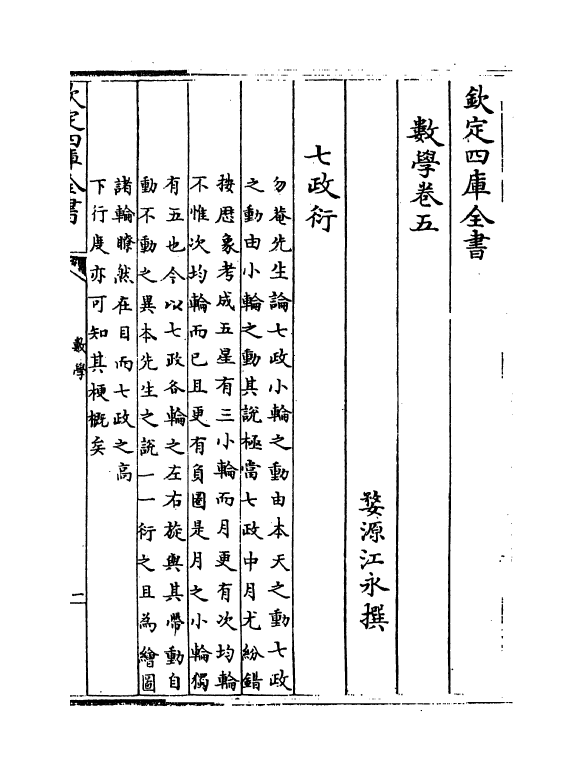 欽定四庫全書
數學卷五
婺源江永撰
七政衍
勿菴先生論七政小輪之動由本天之動七政
之動由小輪之動其說極當七政中月尤紛錯
按厯象考成五星有三小輪而月更有次均輪
不惟次均輪而已且更有負圈是月之小輪獨
有五也今以七政各輪之左右旋與其帶動自
動不動之異本先生之說一一衍之且為繪圖
諸輪瞭然在目而七政之高
下行度亦可知其梗概矣
欽定四庫全書
數學